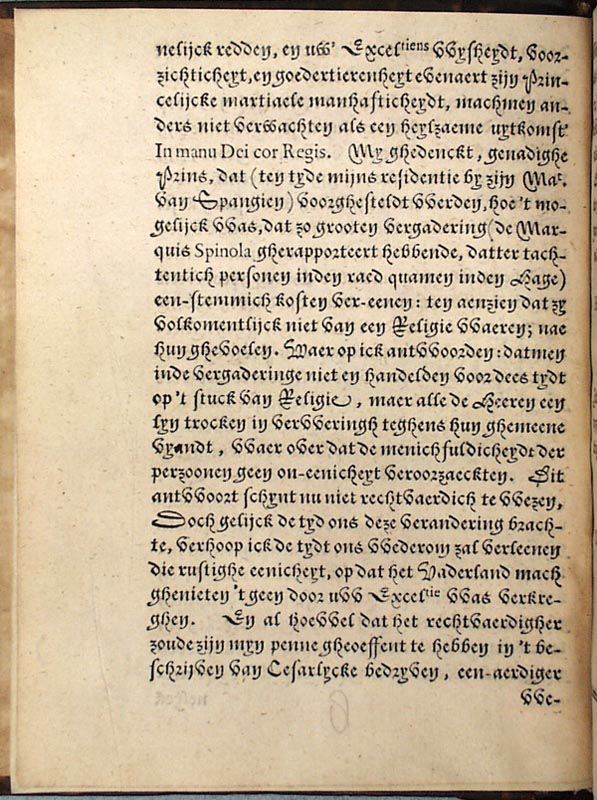 nelijck redden, en uw' Excel^tiens VVysheydt, voor-
zichticheyt, en goedertierenheyt evenaert zijn Prin-
celijcke martiaele manhafticheydt, machmen an-
ders niet verwachten als een heylzaeme uytkomst
In manu Dei cor Regis. My ghedenckt, genadighe
Prins, dat (ten tyde mijns residentie by zijn Ma^t.
van Spangien) voorghesteldt vverden, hoe 't mo-
gelijck vvas, dat zo grooten vergadering (de Mar-
quis Spinola gherapporteert hebbende, datter tach-
tentich personen inden raed quamen inden Hage)
een-stemmich kosten ver-eenen: ten aenzien dat zy
volkomentlijck niet van een Religie vvaeren; nae
hun ghevoelen. Waer op ick antvvoorden: datmen
inde vergaderinge niet en handelden voor dees tydt
op 't stuck van Religie, maer alle de Heeren een
lyn trocken in vervveringh teghens hun ghemeene
vyandt, vvaer over dat de menichfuldicheydt der
perzoonen geen on-eenicheyt veroorzaeckten. Dit
antvvoort schynt nu niet rechtvaerdich te vvezen,
Doch gelijck de tyd ons deze verandering brach-
te, verhoop ick de tydt ons vvederom zal verleenen
die rustighe eenicheyt, op dat het Vaderland mach
ghenieten 't geen door uvv Excel^tie vvas verkre-
ghen. En al hoevvel dat het rechtvaerdigher
zoude zijn myn penne gheoeffent te hebben in 't be-
schrijven van Cesarlycke bedryven, een-aerdiger
vve-
6